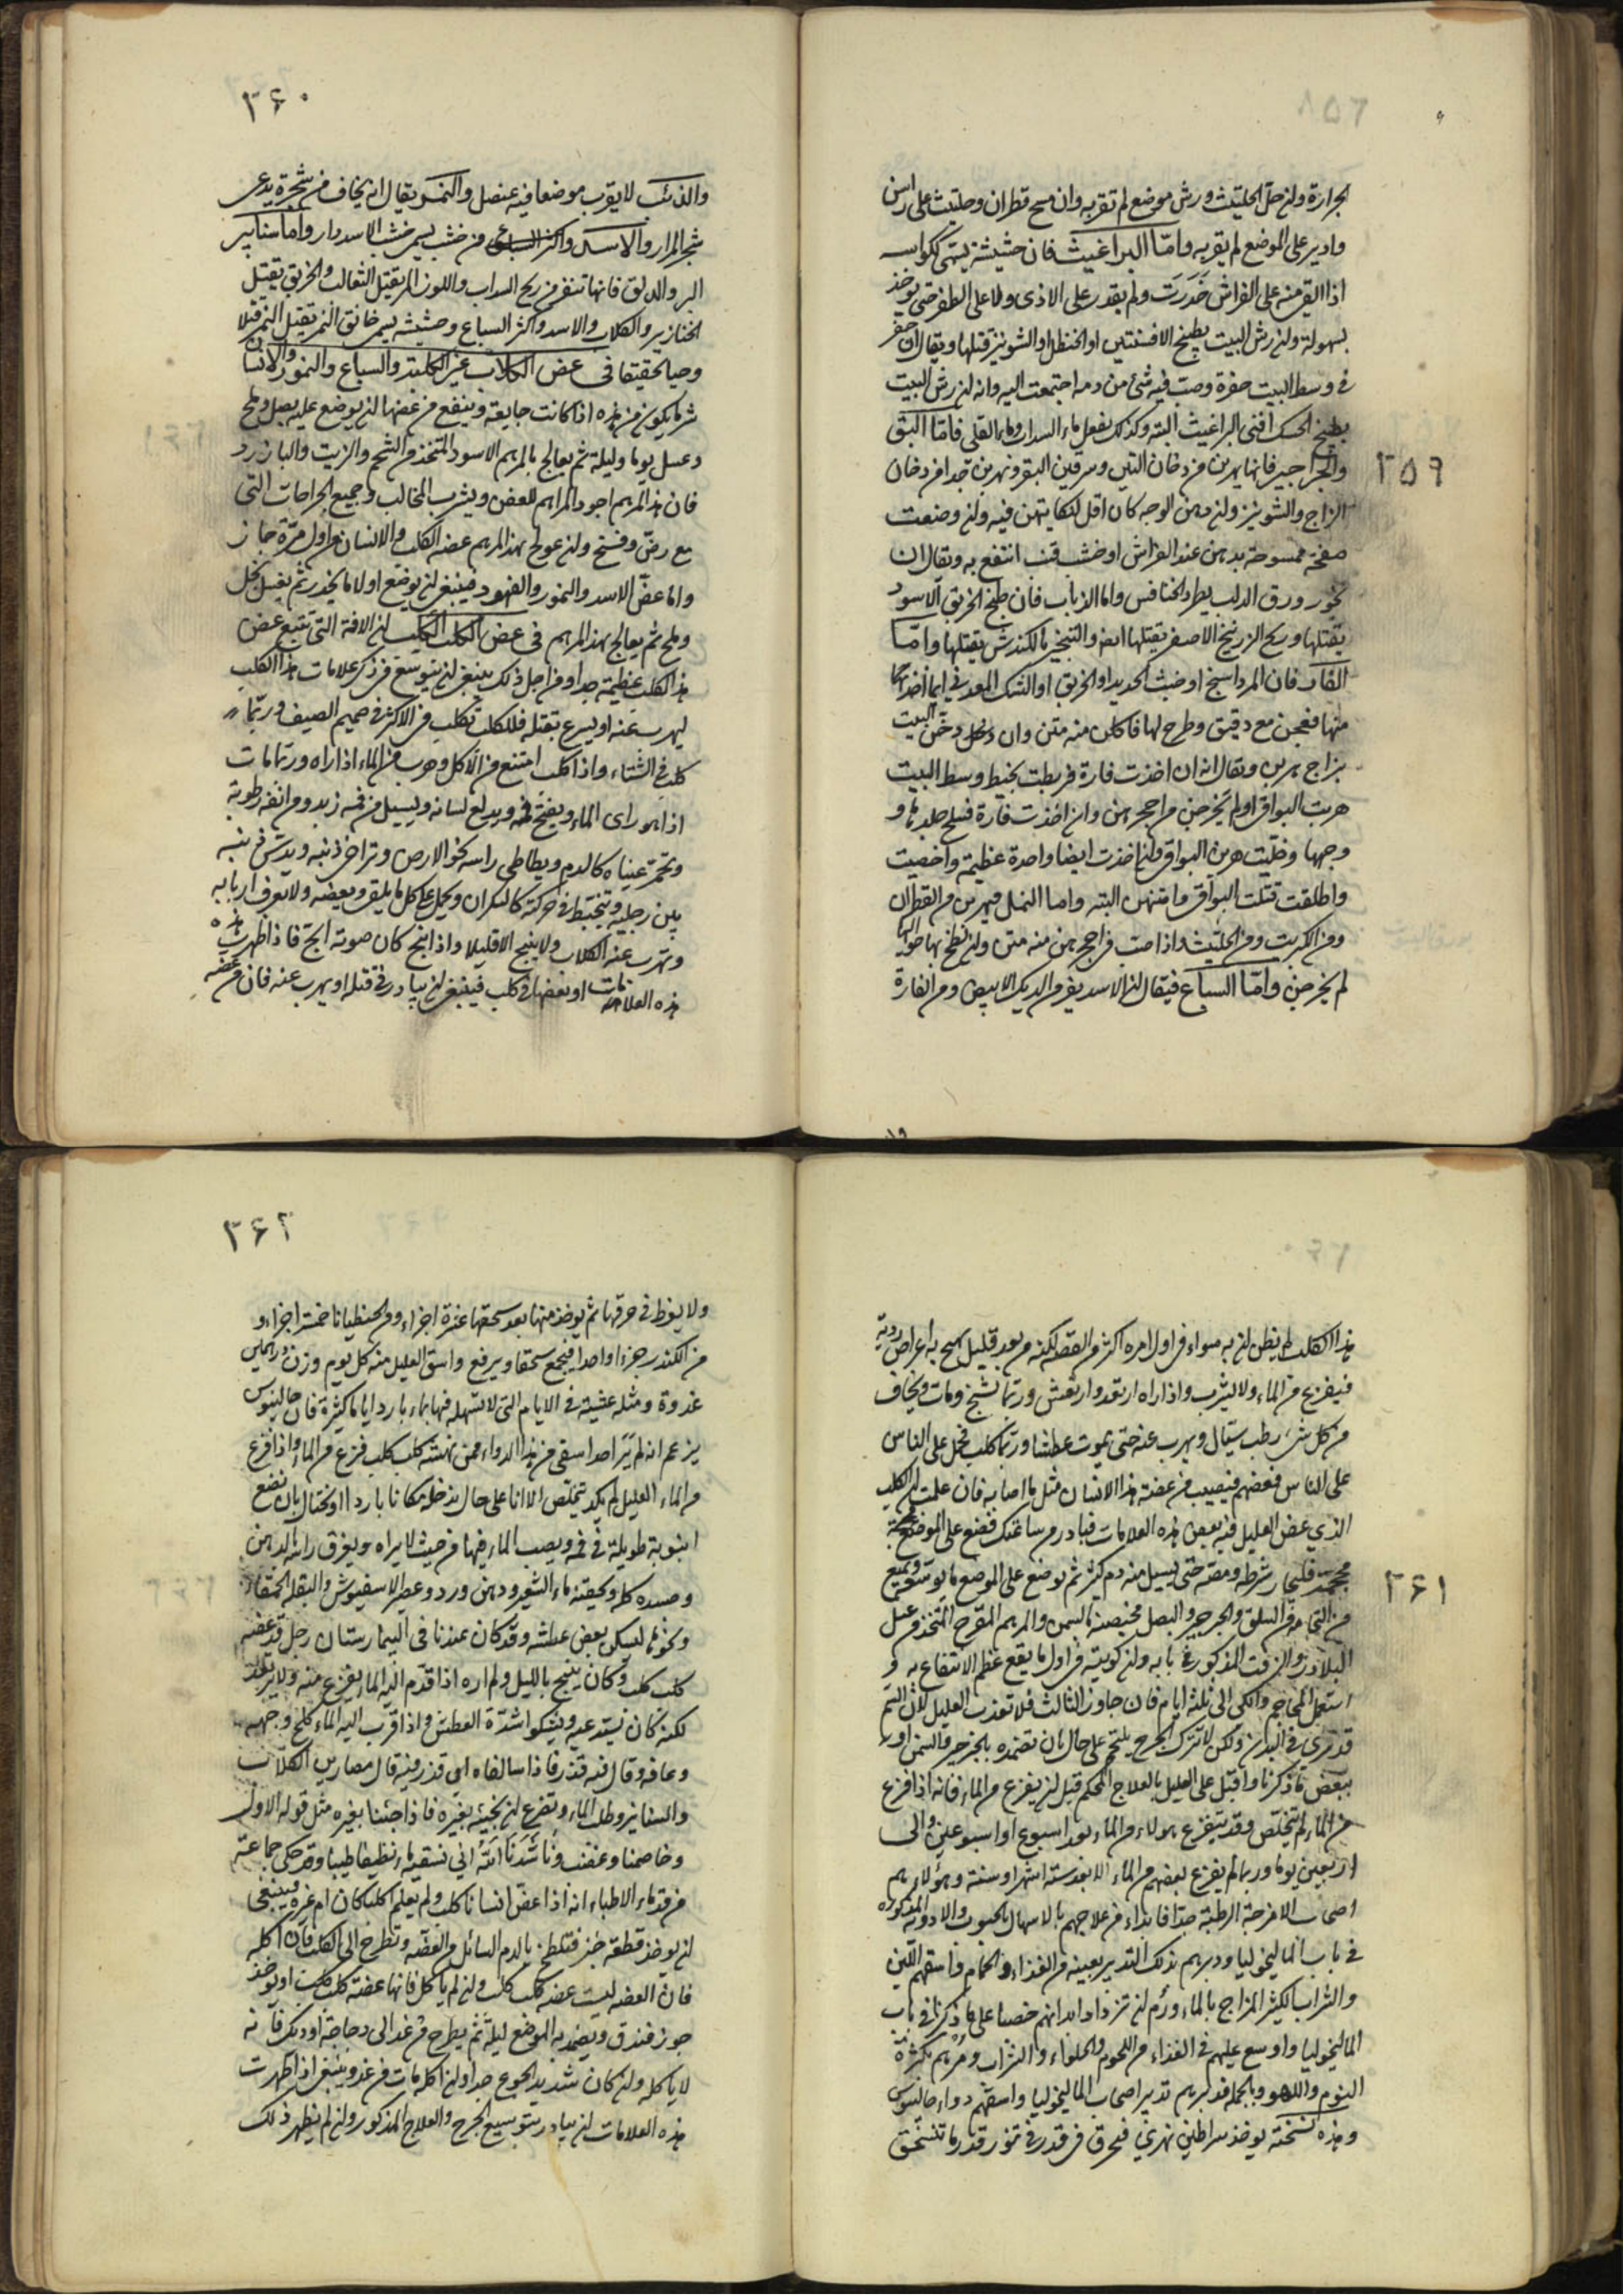 ٣٥٩
الجرارة ولن حل الحلتيث ورش موضع لم تقربه وان مسح قطران وحلتيث على راسن
وادير على الموضع لم يقربه واما البراغيث فان حشيشة يسمى ككواسه
اذا القي منه على الفراش خدرت ولم يقدر على الاذى ولا على الطفر حتى يوخذ
بسهولة ولن رش البيت بطبيخ الافسنتين او الحنظل او الشونيز قتلها ويقال ان حفر
في وسط البيت حفرة وصب فيه شئ من دم اجتمعت اليه وانه لن رش البيت
بطبيخ الحسك افنى البراغيث البته وكذلك يفعل ماء السداب وماء القلى فاما البق
والجراجير فانها يهربن من دخان التبن وسرقين البقر ويهربن جدا من دخان
الزاج والشونيز ولن دهن الوجه كان اقل لنكايتهن فيه ولن وضعت
صفحة ممسوحة بدهن عند الفراش او خشب قنب انتفع به ويقال ان
بخور ورق الدلب يطرد الخنافس واما الذباب فان طبخ الخربق الاسود
يقتلها وريح الزرنيخ الاصفر يقتلها ايضا والتبخير بالكندس يقتلها واما
الفار فان المرداسنج او خبث الحديد او الخربق او الشك المعدني ايما اخذ
منها فعجن مع دقيق وطرح لها فاكلن منه متن وان دخن البيت
بزاج هربن ويقال انه ان اخذت فارة فربطت بخيط وسط البيت
هربت البواقي او لم يخرجن من احجرهن وان اخذت فارة فسلخ جلدها و
وجهها وخليت هربن البواقي ولن اخذت ايضا واحدة عظيمة واخصيت
واطلقت قتلت البواقي وامتنهن البته واما النمل فيهربن من القطران
ومن الكبريت ومن الحلتيث واذا صب في احجرهن منه متن ولن لطخ بها حواليها
لم يخرجن واما السباع فيقال لن الاسد يفر من الديك الابيض ومن الفارة
٣٦٠
والذئب لا يقرب موضعا فيه عنصل والنمر يقال انه يخاف من شجرة يدعى
شجر المرار والاسد واكثر السباع من خشب يسمى خشب الاسددار واما سنانير
البر والدلق فانها تنفر من ريح السداب واللوز المر يقتل الثعالب والخربق يقتل
الخنازير والكلاب والاسد واكثر السباع وحشيشه يسمى خانق النمر يقتل النمر قتلا
وحيا في عض الكلاب غير الكلبة والسباع والنمور والانسان
شر ما يكون من هذه اذا كانت جايعة وينفع من عضها لن يوضع عليه بصل وملح
وعسل يوما وليلة ثم يعالج بالمرهم الاسود المتخذ من الشحم والزيت والبارزد
فان هذا المرهم اجود المراهم للعض ويشرب المخالب وجميع الجراحات التي
مع رض وفسخ ولن عولج بهذا المرهم عضة الكلب والانسان من اول مرة جاز
واما عض الاسد والنمور والفهود فينبغي لن يوضع اولا ما يخدر ثم يغسل بخل
وملح ثم يعالج بهذا المرهم في عض الكلب الكلب لن الافة التي تتبع عض
هذا الكلب عظيمة جدا ومن اجل ذلك ينبغي لن يتوسع في ذكر علامات هذا الكلب
ليهرب عنه او يسرع بقتله فالكلب تكلب في الاكثر في صميم الصيف وربما
كلب في الشتاء واذا كلب امتنع من الاكل وهرب من الماء اذا راه وربما مات
اذا هو راى الماء ويفتح فمه ويدلع لسانه ويسيل من فمه زبد ومن انفه رطوبة
وتحمر عيناه كالدم ويطاطي راسه نحو الارض وتراخى ذنبه ويدس ذنبه
بين رجليه ويتخبط في حركته كالسكران ويحمل على كل ما يلقى ويعضه ولا يعرف اربابه
وتهرب عنه الكلاب ولا ينبح الا قليلا واذا نبح كان صوته ابح فاذا ظهرت هذه
هذه العلامات او بعضها في كلب فينبغي لن يبادر في قتله او يهرب عنه فان من عضه
٣٦١
هذا الكلب لم يظن لن به سواء في اول امره اكثر من العضة لكنه من بعد قليل يهيج به اعراض رديه
فيفزع من الماء ولا يشرب واذا راه ارتعد وارتعش وربما تشنج ومات ويخاف
من كل شئ رطب سيال ويهرب عنه حتى يموت عطشا وربما كلب فحمل على الناس
على الناس فعضهم فيصيب من عضته هذا الانسان مثل ما اصابه فان علمت لن الكلب
الذي عض العليل فيه بعض هذه العلامات فبادر من ساعتك فضع على الموضع محجمة
محجمة فلبحار شرطه ومصه حتى يسيل منه دم كثير ثم توضع على الموضع ما يوسعه ويمنع
من التحامه من السلق والجرجير والبصل مخبصة بالسمن والمرهم المقرح المتخذ من عسل
البلادر والزفت المذكور في بابه ولن كويته في اول ما يقع عظم الانتفاع به و
استعمل المحاجم والكي الى ثلثة ايام فان جاوز الثالث فلا تعذب العليل لان السم
قد سرى في البدن ولكن لا تترك الجرح يلتحم على حال بان تضمده بالجرجير والسمن او
ببعض ما ذكرنا واقبل على العليل بالعلاج المحكم قبل لن يفزع من الماء فانه اذا فزع
من الماء لم يتخلص وقد يتفزع هولاء من الماء بعد اسبوع او اسبوعين والى
اربعين يوما وربما لم يفزع بعضهم من الماء الا بعد ستة اشهر او سنة وهولاء هم
اصحاب الامزجة الرطبة جدا فابداء من علاجهم بالاسهال بالحبوب والادوية المذكورة
في باب الماليخوليا ودبرهم بذلك التدبير بعينه في الغذاء والحمام فاسقهم اللبن
والشراب الكثير المزاج بالماء ورم لن تزداد ابدانهم خصبا على ما ذكرنا في باب
الماليخوليا واوسع عليهم في الغذاء من اللحوم والحلواء والشراب ومرهم بكثرة
النوم واللهو وبالجملة فدبرهم تدبير اصحاب الماليخوليا واسقهم دواء جالينوس
وهذه نسخته يوخذ سراطين نهري فيحرق في قدر في تنور قدر ما تنسحق
٣٦٢
ولا يفرط في حرقها ثم يوخذ منها بعد سحقها عشرة اجزاء ومن الجنطيانا خمسة اجزاء و
من الكندر جزءا واحدا فيجمع سحقا ويرفع واسق العليل منه كل يوم وزن درهمين
غدوة ومثله عشية في الايام التي لا تسهله فيها بماء بارد اياما كثيرة فان جالينوس
يزعم انه لم ير احدا سقي من هذا الدواء ممن نهشه كلب كلب فزع من الماء واذا فزع
من الماء العليل لم يكد يتخلص الا انا على حال ندخله مكانا باردا او نحتال بان نضع
انبوبة طويلة في فمه ويصب الماء فيها من حيث لا يراه ويغرق راسه بالدهن
وصدره كله ويحقنه بماء الشعير ودهن ورد وعصير الاسفيوش والبقلة الحمقاء
ونحوها ليسكن بعض عطشه وقد كان عندنا في البيمارستان رجل قد عضه
كلب كلب وكان ينبح بالليل ولم اره اذا قدم اليه الماء يفزع منه ولا يرتعد
لكنه كان يستدعيه ويشكوا شدة العطش واذا قرب اليه الماء كلح وجهه
وعافه وقال فيه قذر فاذا سالناه اي قذر فيه قال مصارين الكلاب
والسنانير وطلب الماء وتضرع لن نجيئه بغيره فاذا جئنا بغيره مثل قوله الاول
وخاصمنا وغضب وناشدنا الله اني نسقيه ماء نظيفا طيبا وقد حكى جماعة
من قدماء الاطباء انه اذا عض انسانا كلب ولم يعلم اكلبا كان ام غيره فينبغي
لن يوخذ قطعة خبز فتلطخ بالدم السائل من العضه وتطرح الى الكلب فان اكله
فان العضه ليست عضة كلب كلب ولن لم ياكل فانها عضة كلب كلب او يوخذ
جوز فندق ويضمد به الموضع ليلة ثم يطرح من غد الى دجاجة او ديك فانه
لا ياكله ولن كان شديد الجوع جدا ولن اكله مات من غد وينبغي اذا ظهرت
هذه العلامات لن يبادر بتوسيع الجرح والعلاج المذكور ولن لم يظهر ذلك